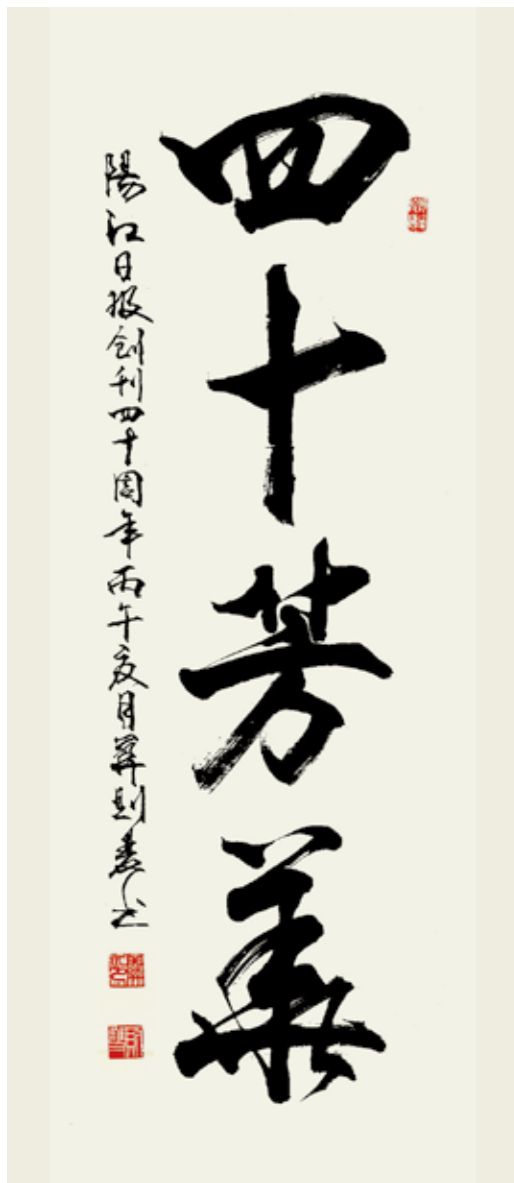 四十芳華
陽江日报创刊四十周年丙午夏月 则 书